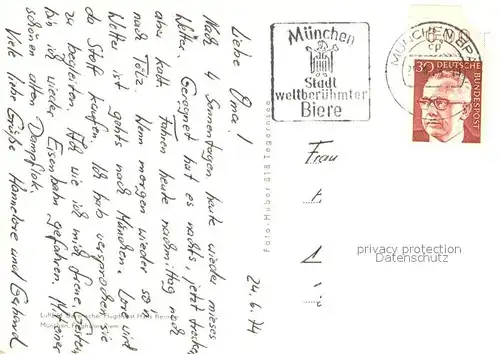 Liebe Oma!
Nach 4 Sonnentagen heute wieder mieses
Wetter. Geregnet hat es nachts, jetzt trocken
aber kalt. Fahren heute nachmittag noch
nach Tölz. Wenn morgen wieder so'n
Wetter ist gehts nach München. Lore wird
da Stoff kaufen. Ich hab versprochen sie
zu begleiten. Ach wie ich mich freue. Gestern
bin ich wieder Eisenbahn gefahren. Mit einer
schönen alten Dampflok.
Viele liebe Grüße Hannelore und Gerhard
24.6.74
Foto: Huber 818 Tegernsee
München
Stadt
weltberühmter
Biere
MÜNCHEN BPA
30
DEUTSCHE BUNDESPOST
Frau
privacy protection
Datenschutz